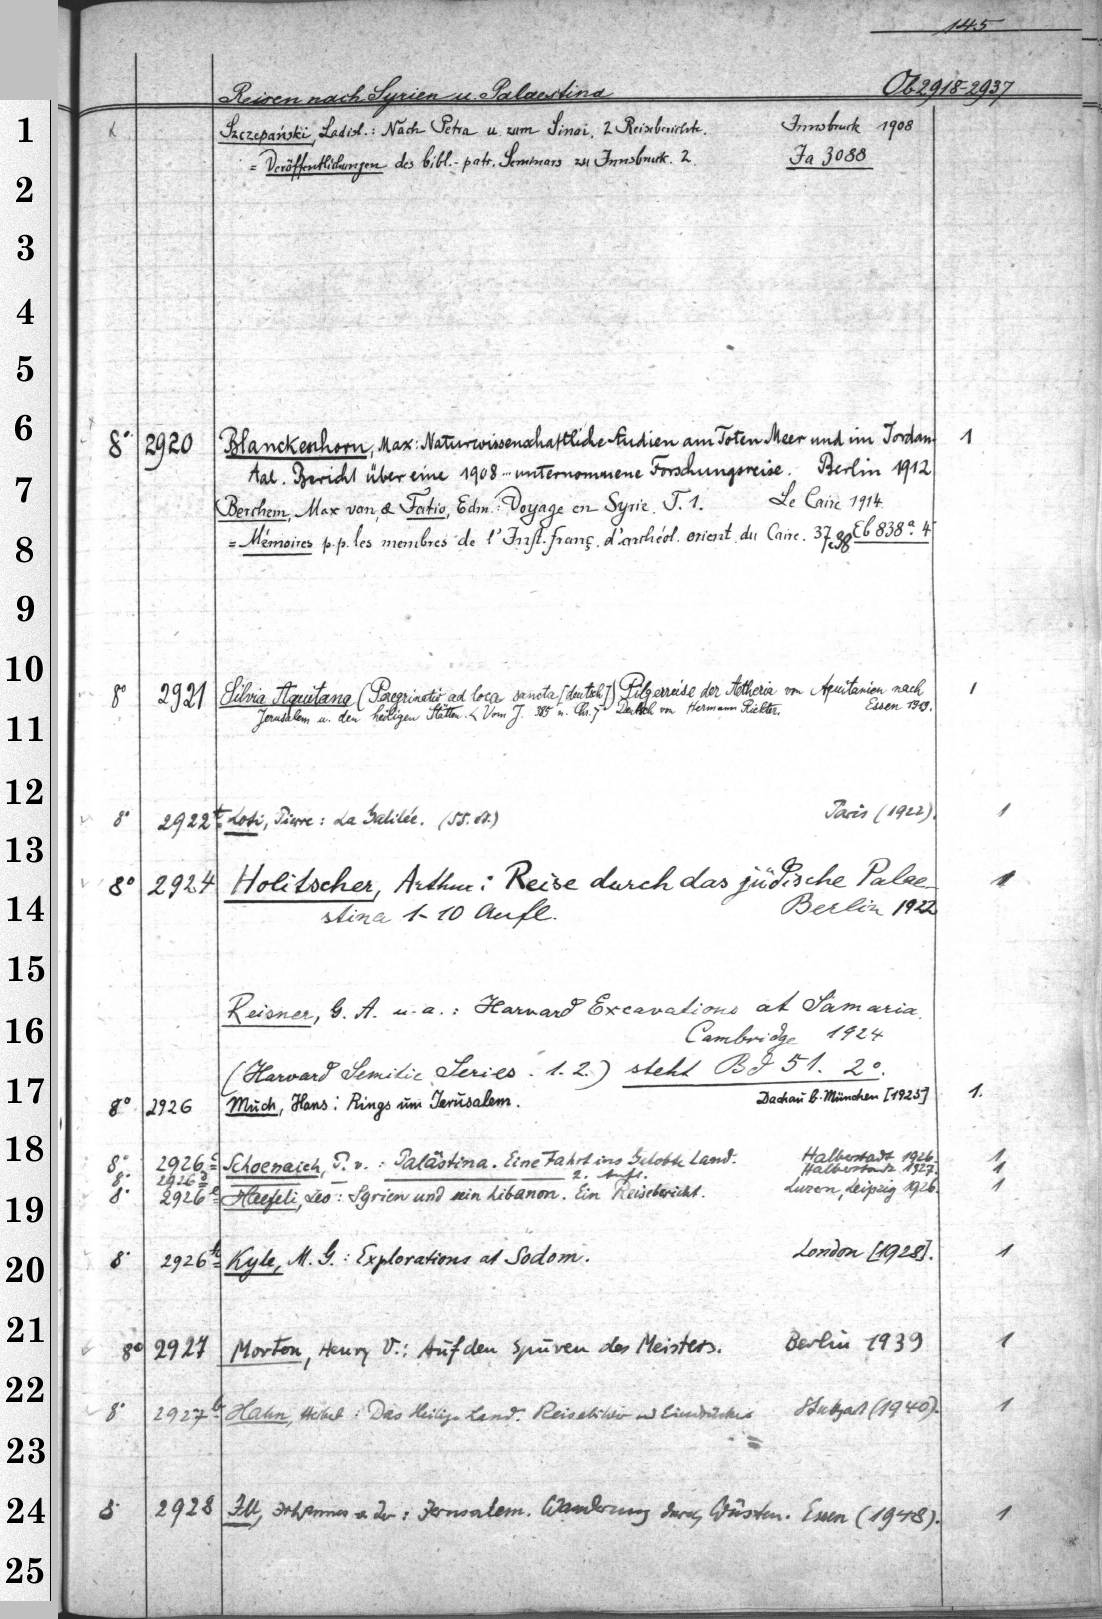 145
Reisen nach Syrien u. Palaestina Ob 2918-2937
1 Szczepański, Ladisl.: Nach Petra u. zum Sinai. 2 Reiseberichte. Innsbruck 1908
= Veröffentlichungen des bibl.-patr. Seminars zu Innsbruck. 2. Fa 3088
2
3
4
5
6 8° 2920 Blanckenhorn, Max: Naturwissenschaftliche Studien am Toten Meer und im Jordan- 1
tal. Bericht über eine 1908 unternommene Forschungsreise. Berlin 1912
7 Berchem, Max van, & Fatio, Edm.: Voyage en Syrie. T. 1. Le Caire 1914
8 = Mémoires p.p. les membres de l'Inst. franç. d'archéol. orient. du Caire. 37 Eb 838ᵃ. 4°
9
10 8° 2921 Silvia Aquitana (Peregrinatio ad loca sancta [deutsch]) Pilgerreise der Aetheria von Aquitanien nach 1
11 Jerusalem u. den heiligen Stätten. (Vom J. n. Chr.) Deutsch von Hermann Richter. Essen 1919.
12 8° 2922ᵗ Loti, Pierre: La Galilée. Paris (1922). 1
13 8° 2924 Holitscher, Arthur: Reise durch das jüdische Palae- 1
14 stina 1-10 Aufl. Berlin 1922
15
Reisner, G. A. u. a.: Harvard Excavations at Samaria.
16 Cambridge 1924
(Harvard Semitic Series. 1. 2.) steht Bd 51. 2°.
17 8° 2926 Much, Hans: Rings um Jerusalem. Dachau b. München [1925] 1.
18 8° 2926ᶜ Schoenaich, P. v.: Palästina. Eine Fahrt ins Gelobte Land. Halberstadt 1926. 1
8° 2926ᵈ — 2. Aufl. Halberstadt 1927. 1
8° 2926ᵉ Haefeli, Leo: Syrien und sein Libanon. Ein Reisebericht. Luzern, Leipzig 1926. 1
19
20 8° 2926ᵏ Kyle, M. G.: Explorations at Sodom. London [1928]. 1
21 8° 2927 Morton, Henry V.: Auf den Spuren des Meisters. Berlin 1939 1
22 8° 2927ᵇ Hahn, : Das Heilige Land. Reisebilder und Eindrücke Stuttgart (1940). 1
23
24 8° 2928 Ill, Johannes : Jerusalem. Wanderung durch Wüsten. Essen (1948). 1
25